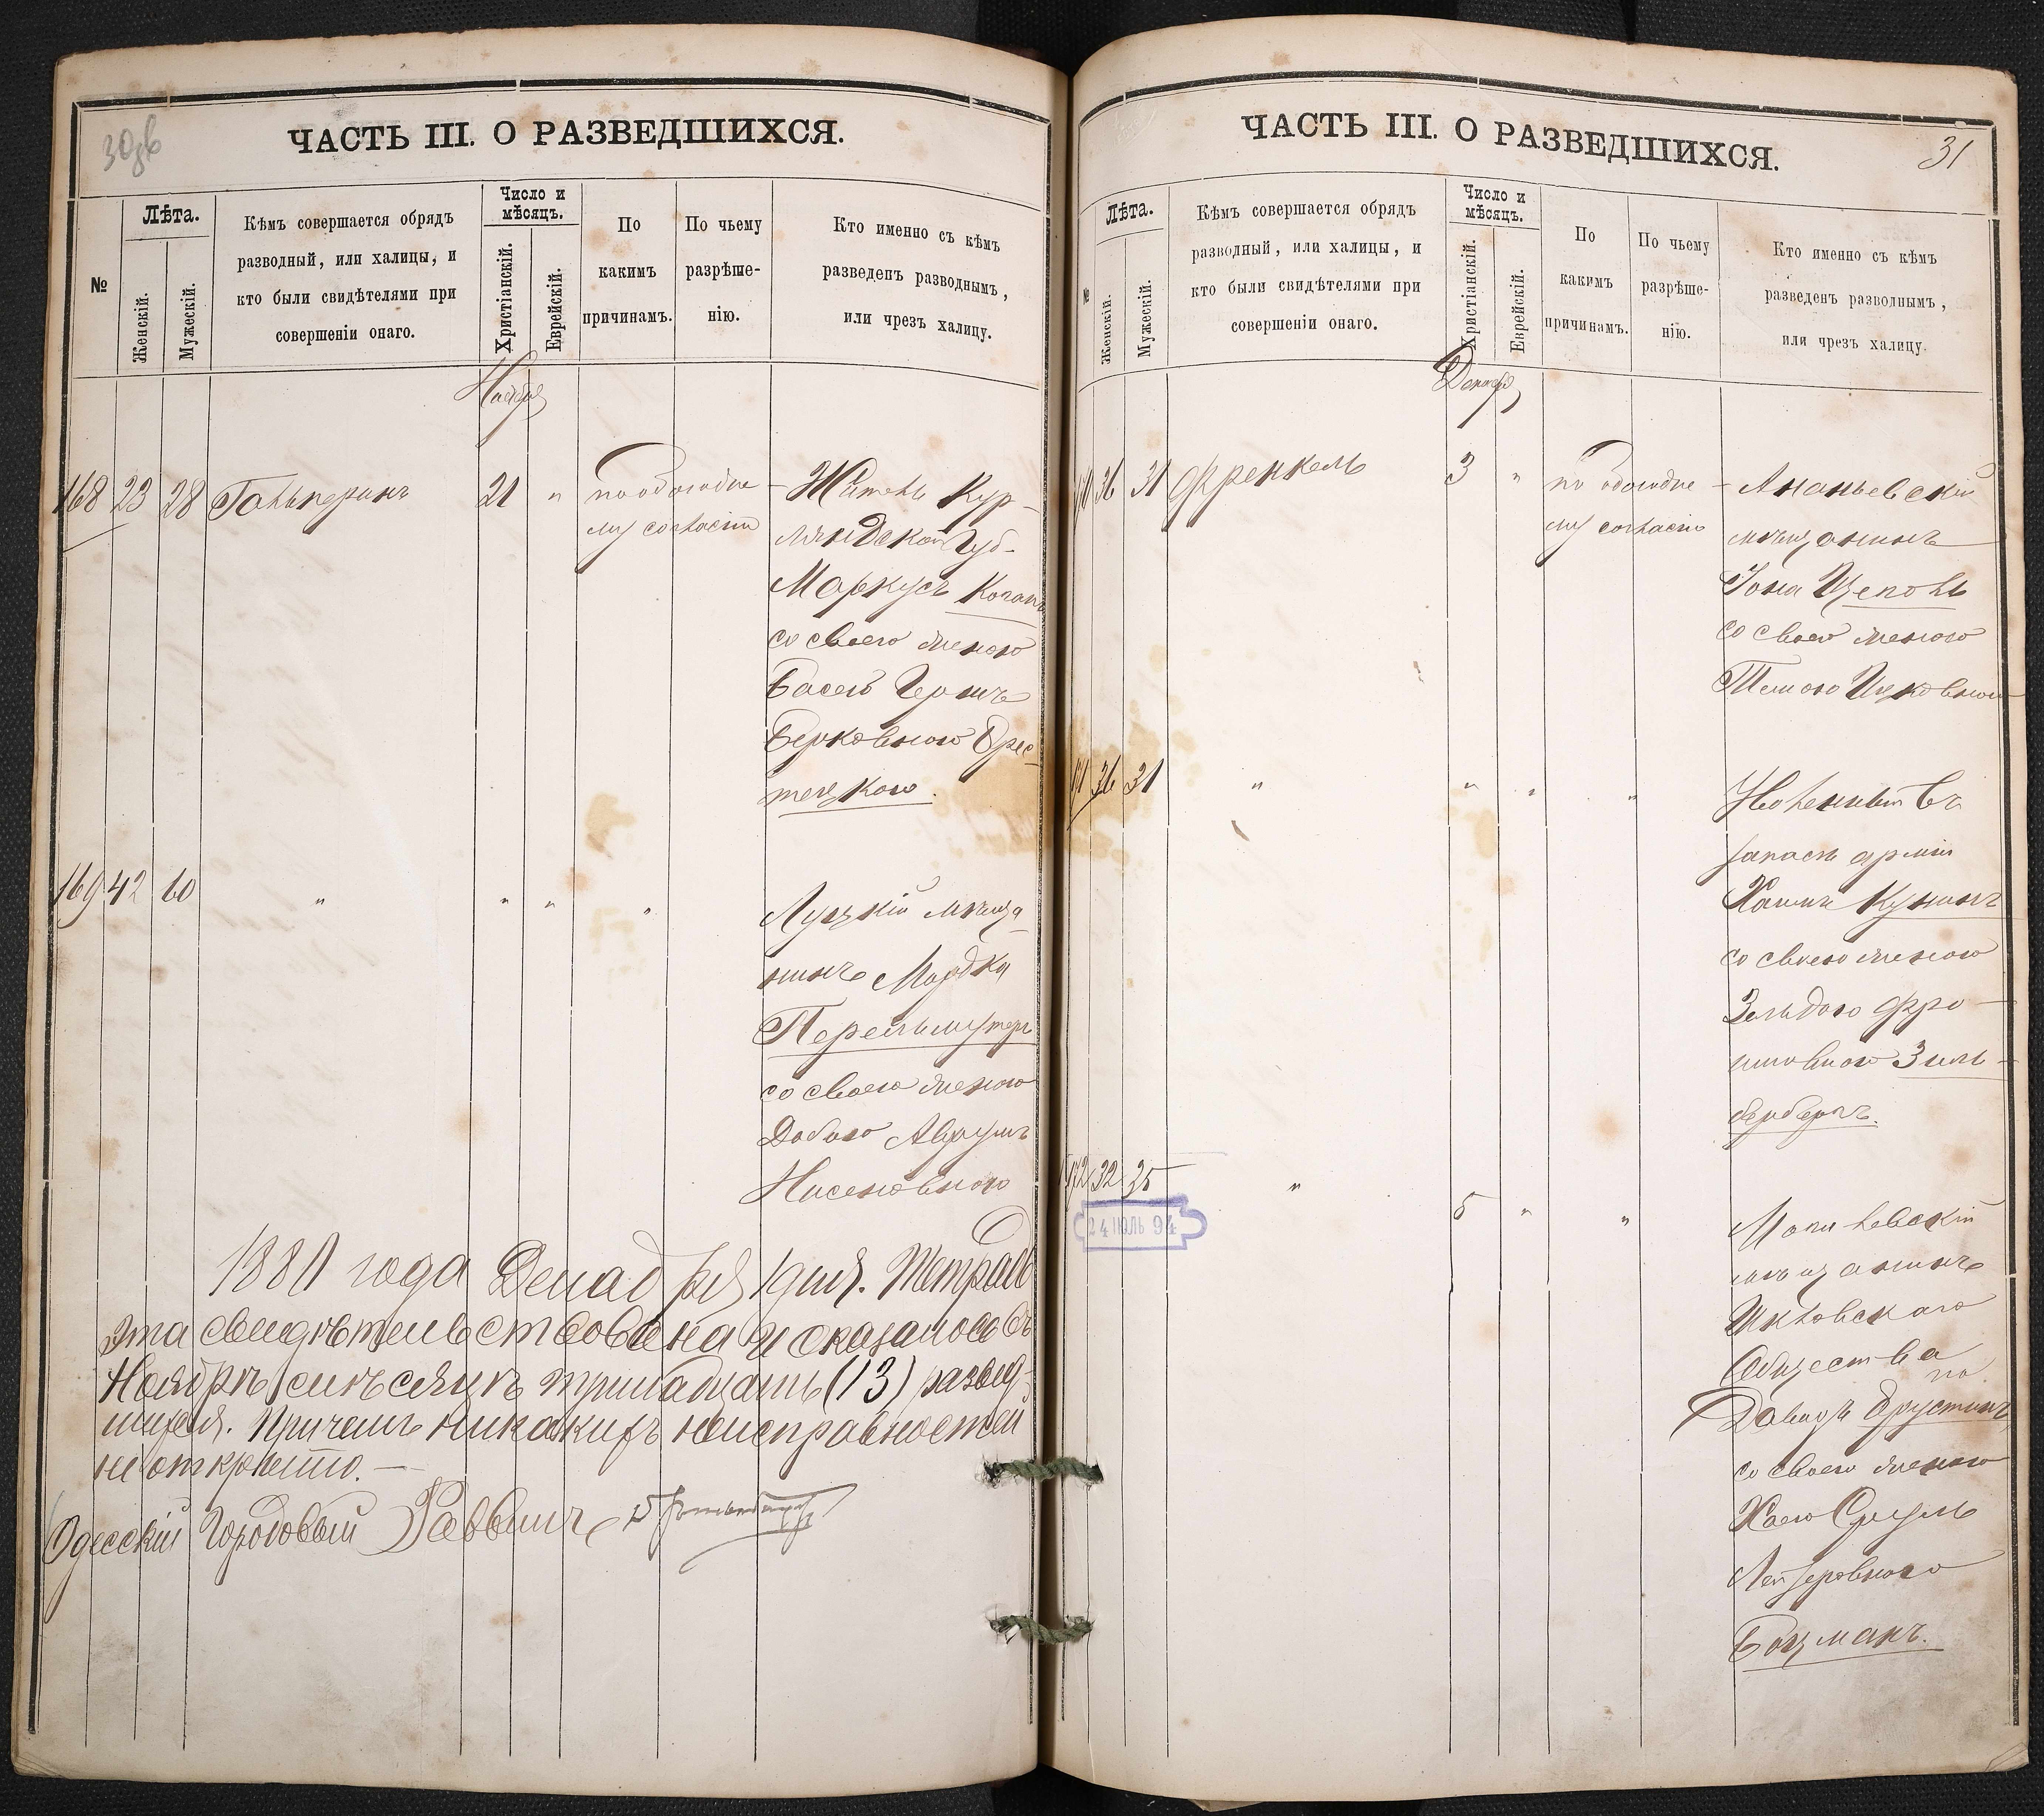 30об
ЧАСТЬ III. О РАЗВЕДШИХСЯ.
№
Лѣта.
Женскій.
Мужескій.
Кѣмъ совершается обрядъ
разводный, или халицы, и
кто были свидѣтелями при
совершеніи онаго.
Число и
мѣсяцъ.
Христіанскій.
Еврейскій.
По
какимъ
причинамъ.
По чьему
разрѣше-
нію.
Кто именно съ кѣмъ
разведенъ разводнымъ,
или чрезъ халицу.
Ноябрь
168 23 28 Гальперинъ 21 " по обоюдно- Житель Кур-
му согласію ляндской Губ.
Маркусъ Коганъ
со своею женою
Басею Геня
Берковною Брес-
течкою.
169 42 60 " " " " Луцкій мѣща-
нинъ Мордка
Перельмутеръ
со своею женою
Добою Аврумъ
Нисеновною
1881 года Декабря 1 дня. Тетрадь
эта свидѣтельствована и оказалось въ
Ноябрѣ мѣсяцѣ тринадцать (13) развед-
шихся. Причемъ никакихъ неисправностей
не открыто.—
Одесскій Городовый Раввинъ
ЧАСТЬ III. О РАЗВЕДШИХСЯ.
31
№
Лѣта.
Женскій.
Мужескій.
Кѣмъ совершается обрядъ
разводный, или халицы, и
кто были свидѣтелями при
совершеніи онаго.
Число и
мѣсяцъ.
Христіанскій.
Еврейскій.
По
какимъ
причинамъ.
По чьему
разрѣше-
нію.
Кто именно съ кѣмъ
разведенъ разводнымъ,
или чрезъ халицу.
Декабрь
170 36 31 Френкель 3 " по обоюдно- Ананьевскій
му согласію мѣщанинъ
Іона Цеполь
со своею женою
Темою Ицковною
171 36 31 " " " " Уволенный въ
запасъ арміи
Хаимъ Кунинъ
со своею женою
Зельдою Фро-
имовною Зиль-
берберъ.
172 32 35 " 5 " " Могилевскій
мѣщанинъ
Общества
Давидъ Друстинъ
со своею женою
Хаею Сруль
Лейзеровною
Боцманъ.
24 ІЮЛЬ 94